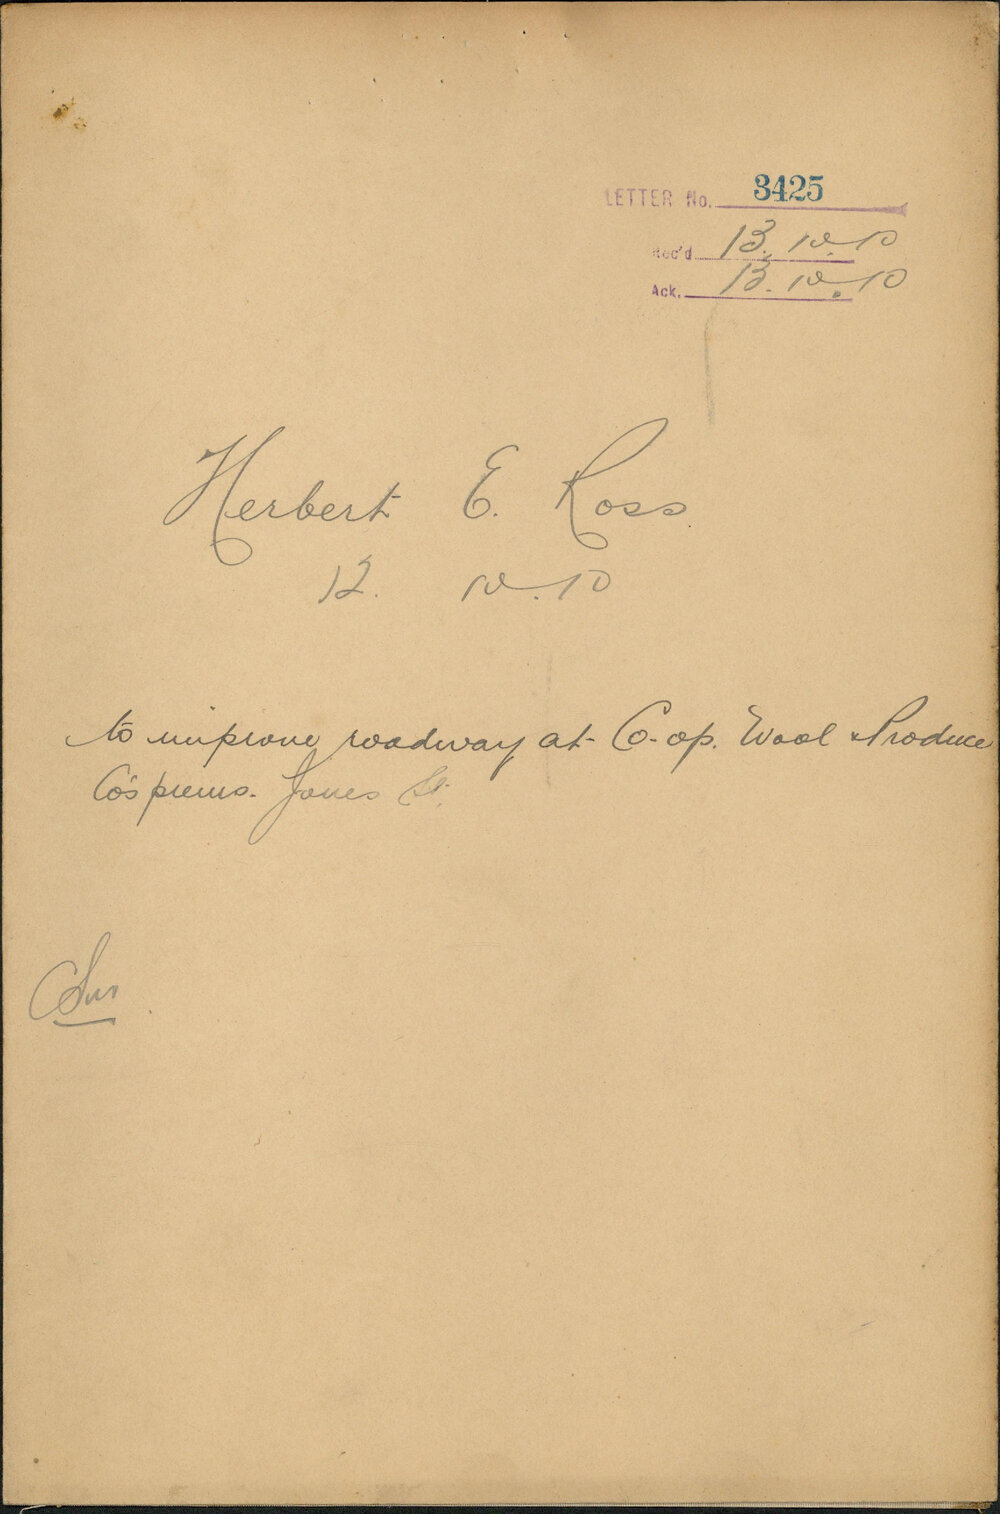 LETTER No. 3425
Rec'd 13.10.10
Ack. 13.10.10
Herbert E. Ross
12.10.10
to improve roadway at Co-op. Wool & Produce
Co's prems. Jones St.